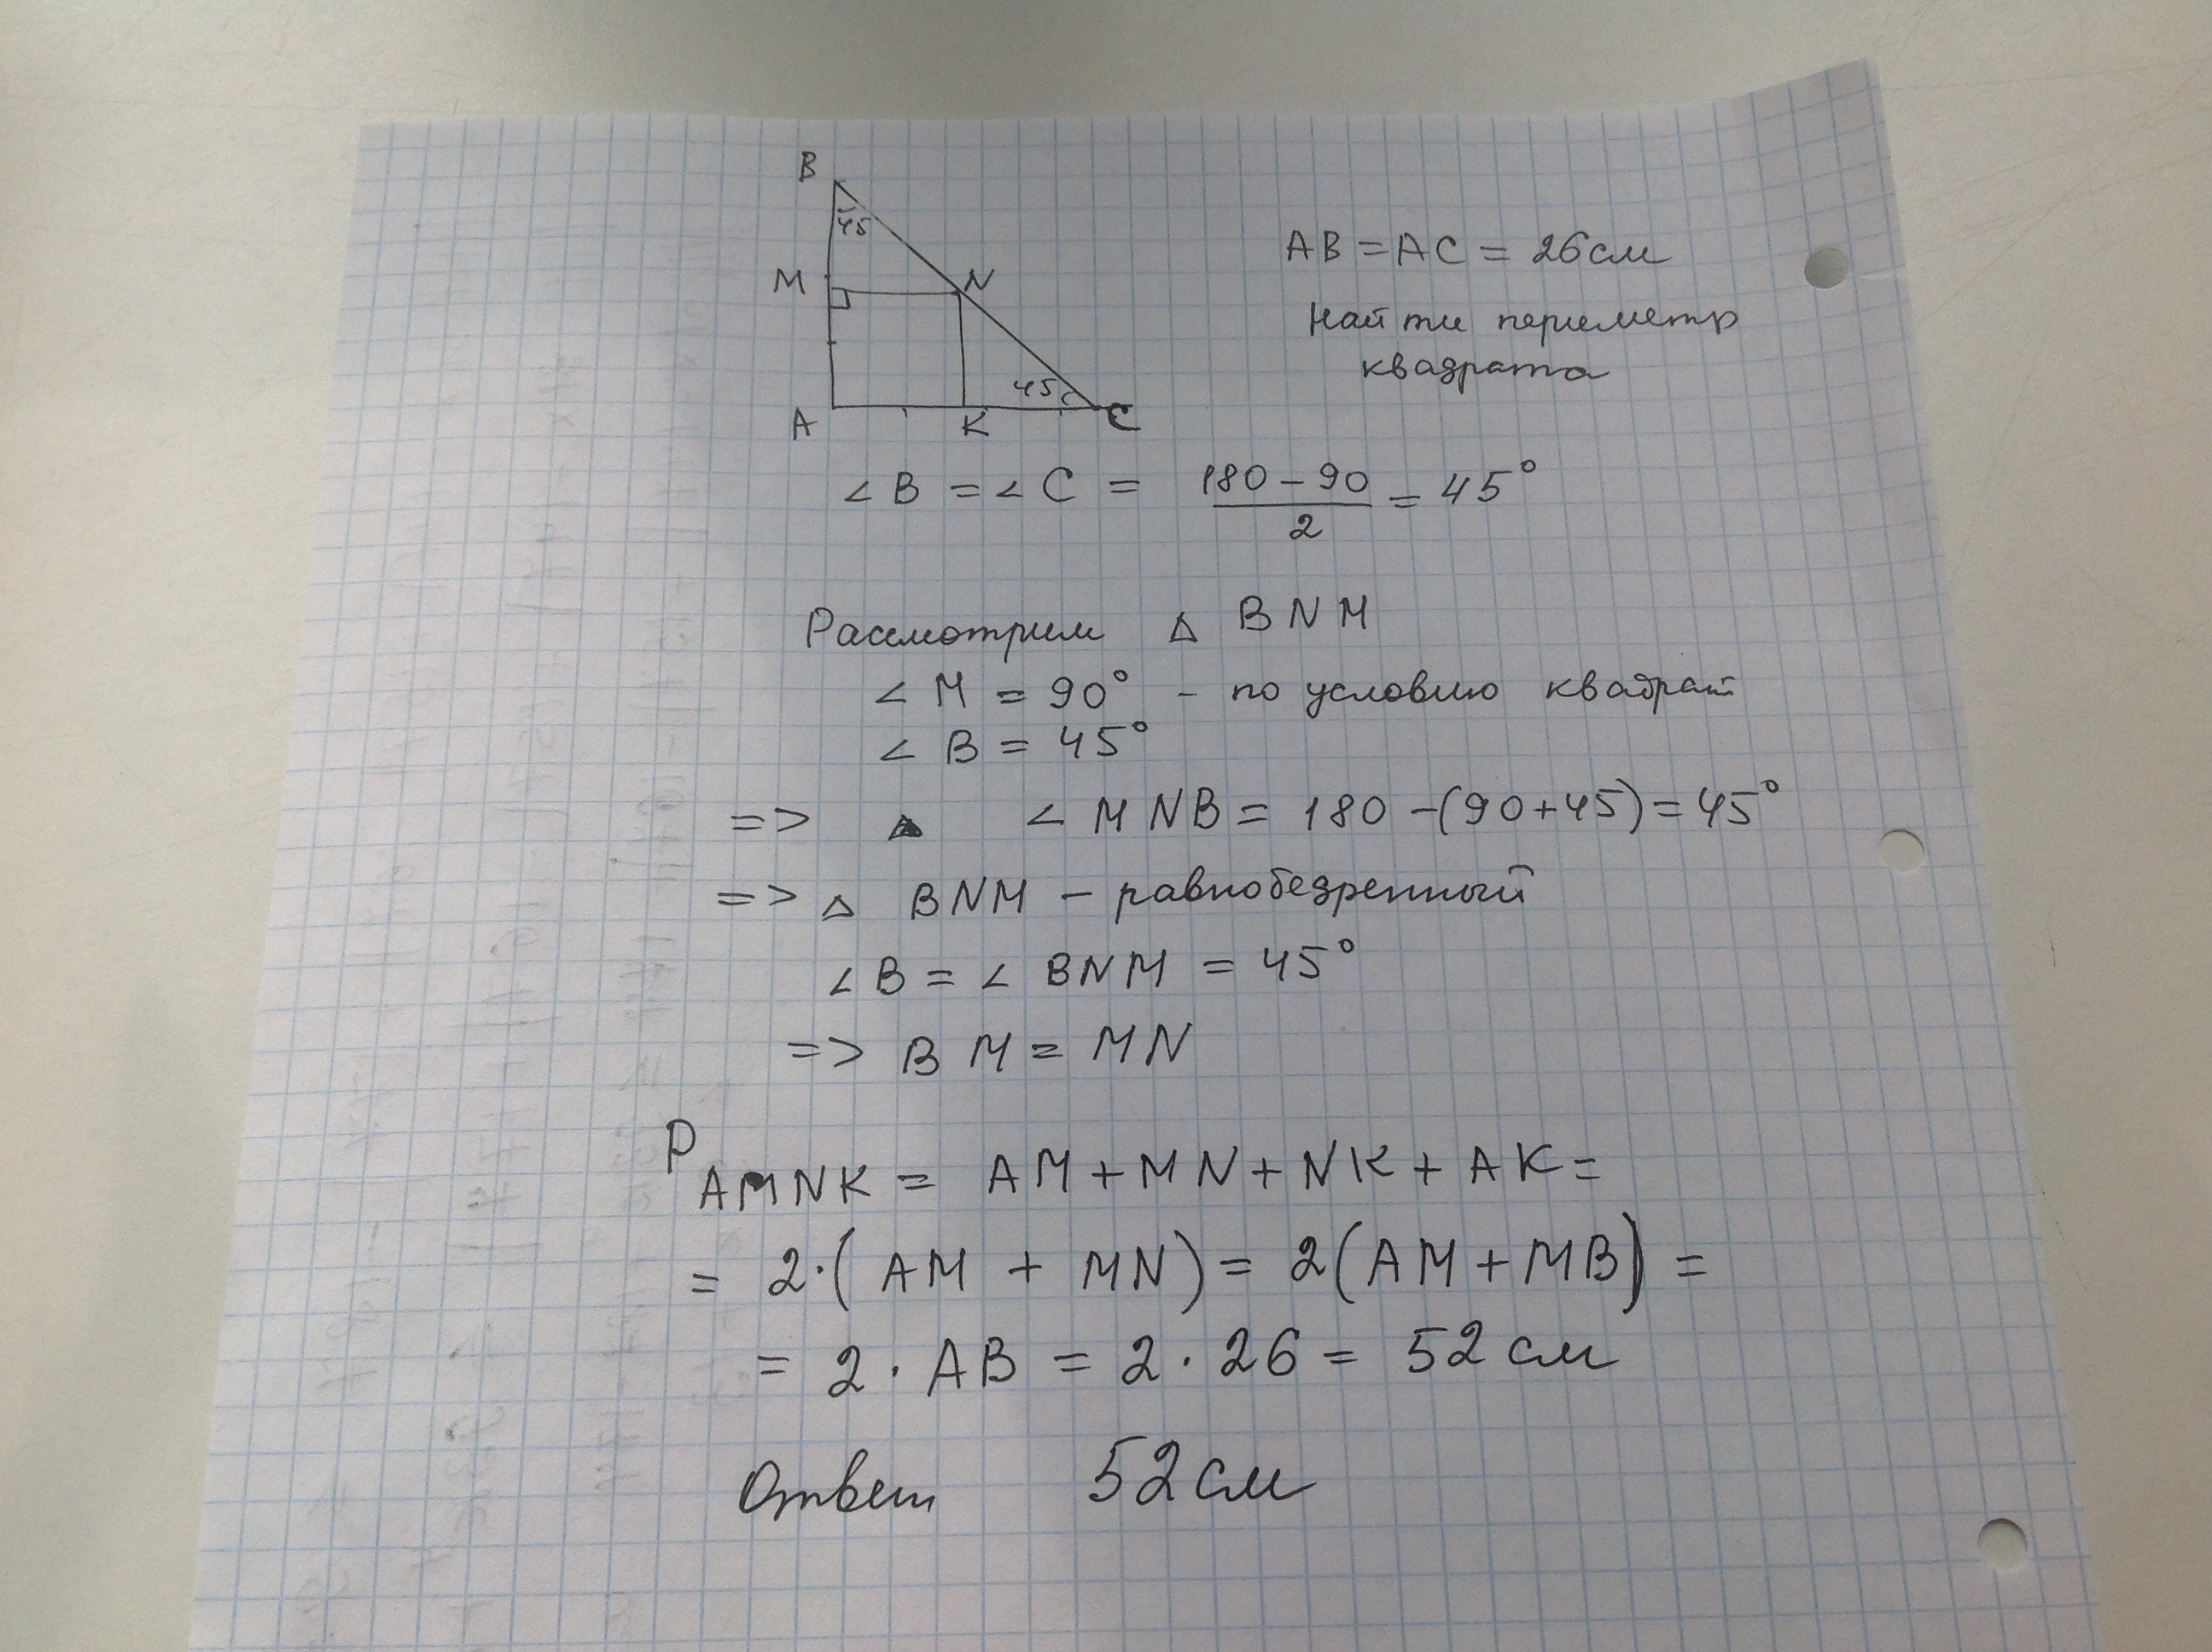 B
45
M
N
45
A
K
C
AB = AC = 26 см
Найти периметр
квадрата
∠B = ∠C = (180 − 90)/2 = 45°
Рассмотрим △ BNM
∠M = 90° - по условию квадрат
∠B = 45°
=> ∠MNB = 180 − (90 + 45) = 45°
=> △ BNM – равнобедренный
∠B = ∠BNM = 45°
=> BM = MN
P AMNK = AM + MN + NK + AK =
= 2·(AM + MN) = 2(AM + MB) =
= 2 · AB = 2 · 26 = 52 см
Ответ 52 см